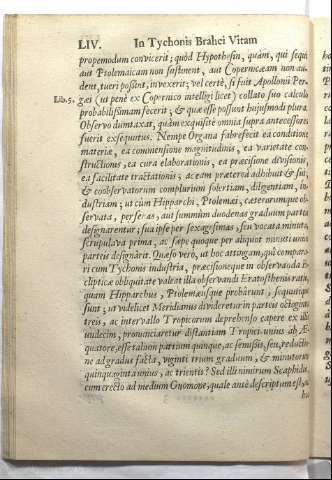 LIV. In Tychonis Brahei Vitam
propemodum convicerit; quòd Hypothesin, quàm, qui sequi
aut Ptolemaicam non sustinent, aut Copernicæam non au-
dent, tueri possint, invexerit; vel certè, si fuit Apollonii Per-
Lib. 5. gæi (ut penè ex Copernico intelligi licet) collato suo calculo
probabilissimam fecerit; & quæ esse possunt hujusmodi plura.
Observo dumtaxat, quàm exquisitè omnia supra antecessores
fuerit exsequutus. Nempe Organa fabrefecit ea conditione
materiæ, ea commensione magnitudinis, ea varietate con-
structionis, ea cura elaborationis, ea præcisione divisionis,
ea facilitate tractationis; ac eam præterea adhibuit & sui,
& coobservatorum complurium solertiam, diligentiam, in-
dustriam; ut cùm Hipparchi, Ptolemæi, cæterorumque ob-
servata, per senas, aut summùm duodenas graduum parteis
designarentur; sua ipse per sexagesimas, seu vocata minuta,
scrupula va prima, ac sæpe quoque per aliquot minutorum
parteis designârit. Quæso verò, ut hoc attingam, quî compara-
ri cum Tychonis industria, præcisioneque in observanda E-
clipticæ obliquitate valeat illa observandi Eratosthenis ratio,
quam Hipparchus, Ptolemæusque probârunt, sequutique
sunt; ut videlicet Meridianus divideretur in parteis octoginta
treis, ac intervallo Tropicorum deprehenso capere ex illis
undecim, pronunciaretur distantiam Tropici unius ab Æ-
quatore, esse talium partium quinque, ac semissis, seu, reductio-
ne ad gradus facta, viginti trium graduum, & minutorum
quinquaginta unius, ac trientis? Sed illi nimirum Scaphio,
cum erecto ad medium Gnomone, quale antè descriptum est,